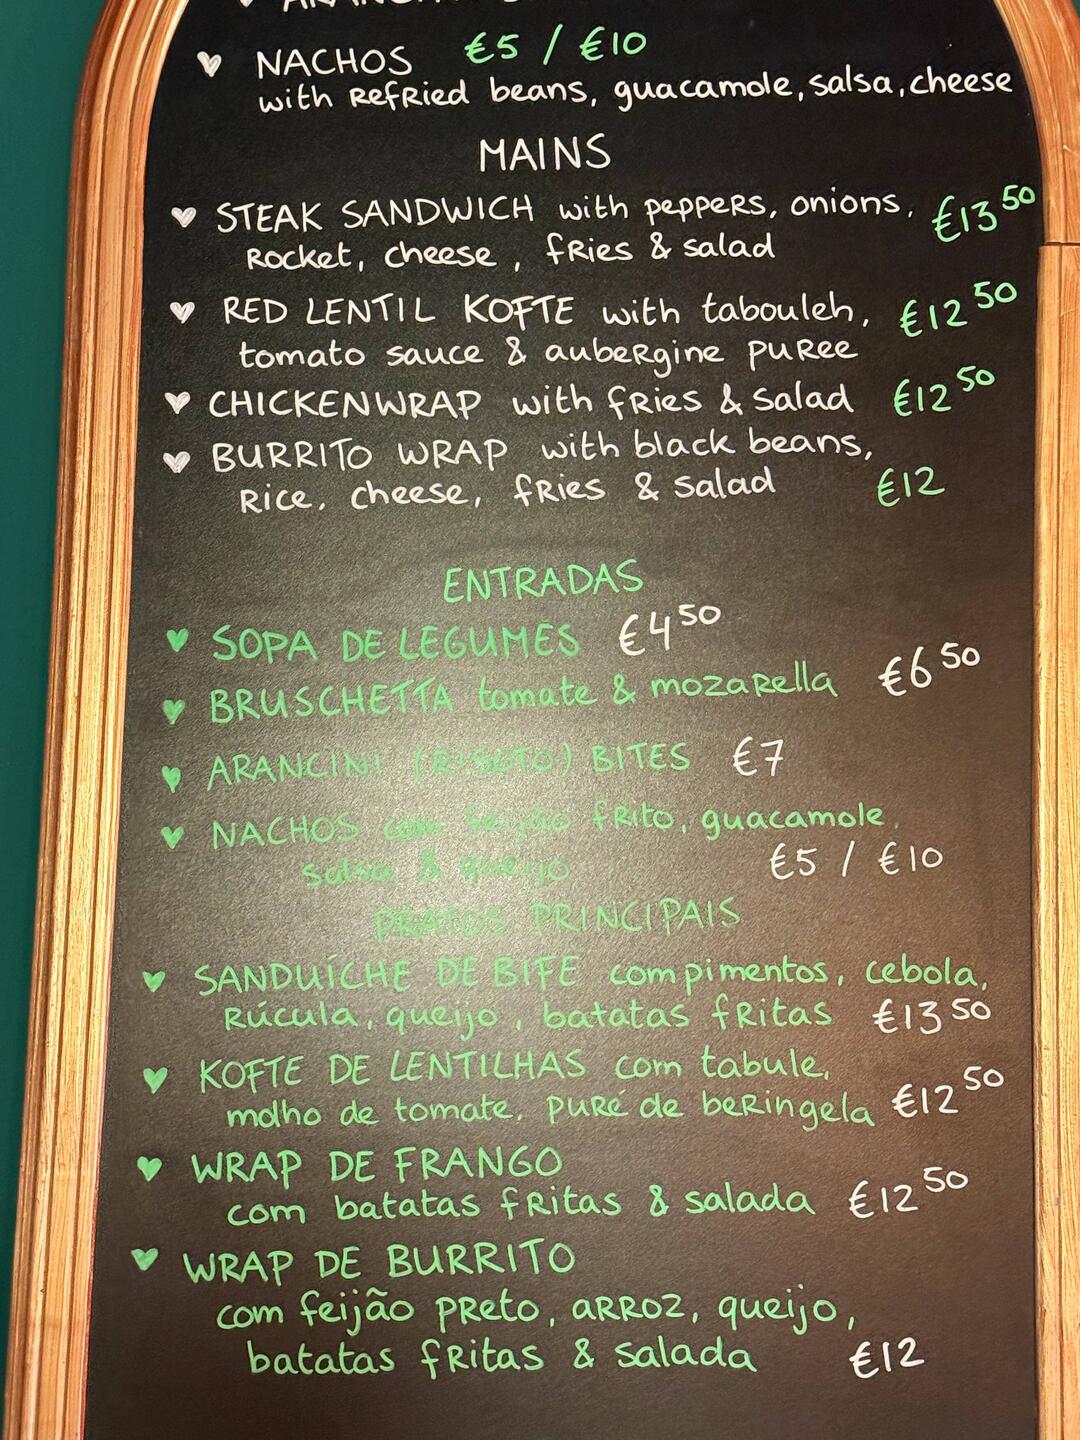 NACHOS €5 / €10
with Refried beans, guacamole, salsa, cheese
MAINS
STEAK SANDWICH with peppers, onions, €13 50
Rocket, cheese, fries & salad
RED LENTIL KOFTE with tabouleh, €12 50
tomato sauce & aubergine puree
CHICKENWRAP with fries & salad €12 50
BURRITO WRAP with black beans,
Rice, cheese, fries & salad €12
ENTRADAS
SOPA DE LEGUMES €4 50
BRUSCHETTA tomate & mozarella €6 50
ARANCINI (RISOTO) BITES €7
NACHOS com feijão frito, guacamole,
salsa & queijo €5 / €10
PRATOS PRINCIPAIS
SANDUÍCHE DE BIFE com pimentos, cebola,
Rúcula, queijo, batatas fritas €13 50
KOFTE DE LENTILHAS com tabule,
molho de tomate, puré de beringela €12 50
WRAP DE FRANGO
com batatas fritas & salada €12 50
WRAP DE BURRITO
com feijão preto, arroz, queijo,
batatas fritas & salada €12